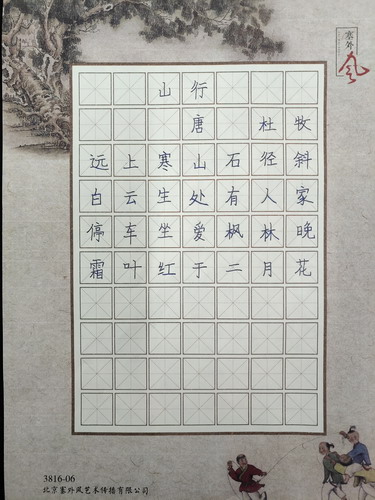 塞外
风
山行
唐 杜牧
远上寒山石径斜
白云生处有人家
停车坐爱枫林晚
霜叶红于二月花
3816-06
北京塞外风艺术传播有限公司